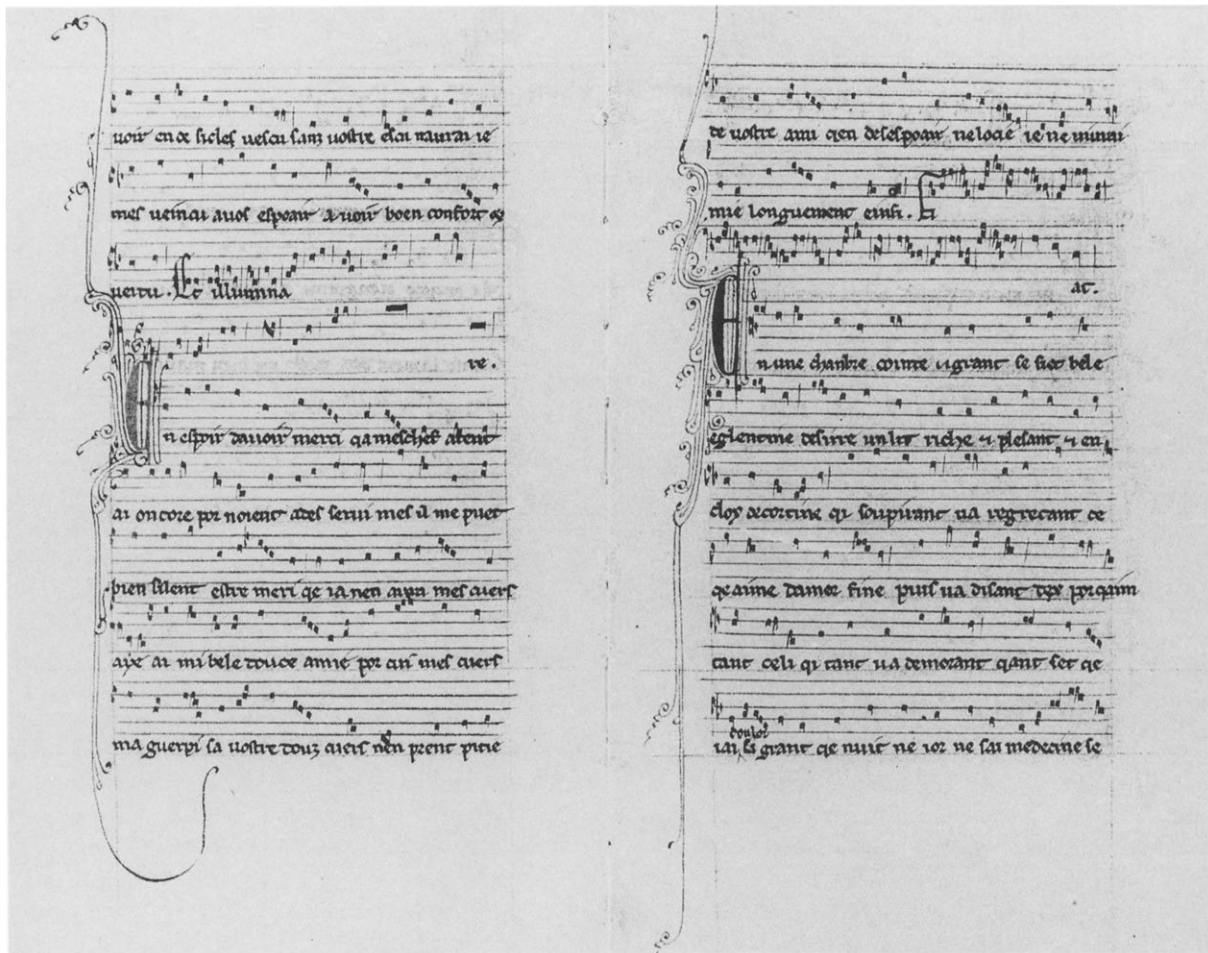 uoir en ce sicles uescu sanz uostre escu naurai ie
mes ueincu auos espoair a uoir boen confort &
uertu. Et illumina
re.
En espoir dauoir merci qa meschef atent
ai oncore por noient ades serui mes il me puet
bien silent estre meri qe ia nen mes cuers
aye ai mi bele douce amie por cui mes cuers
ma guerpi sa uostre douz cuers nen prent pitie
de uostre ami qen desespoair ne locie ie ne uiurai
mie longuement einsi. Et
at.
En une chanbre cointe & grant se siet bele
eglentine desure un lit riche & plesant & en
clox de cortine qi soupirant ua regretant ce
qe aime damor fine puis ua disant dex por qaim
tant celi qi tant ua demorant qant set qe
doulor
iai si grant qe nuit ne ior ne sai medecine se